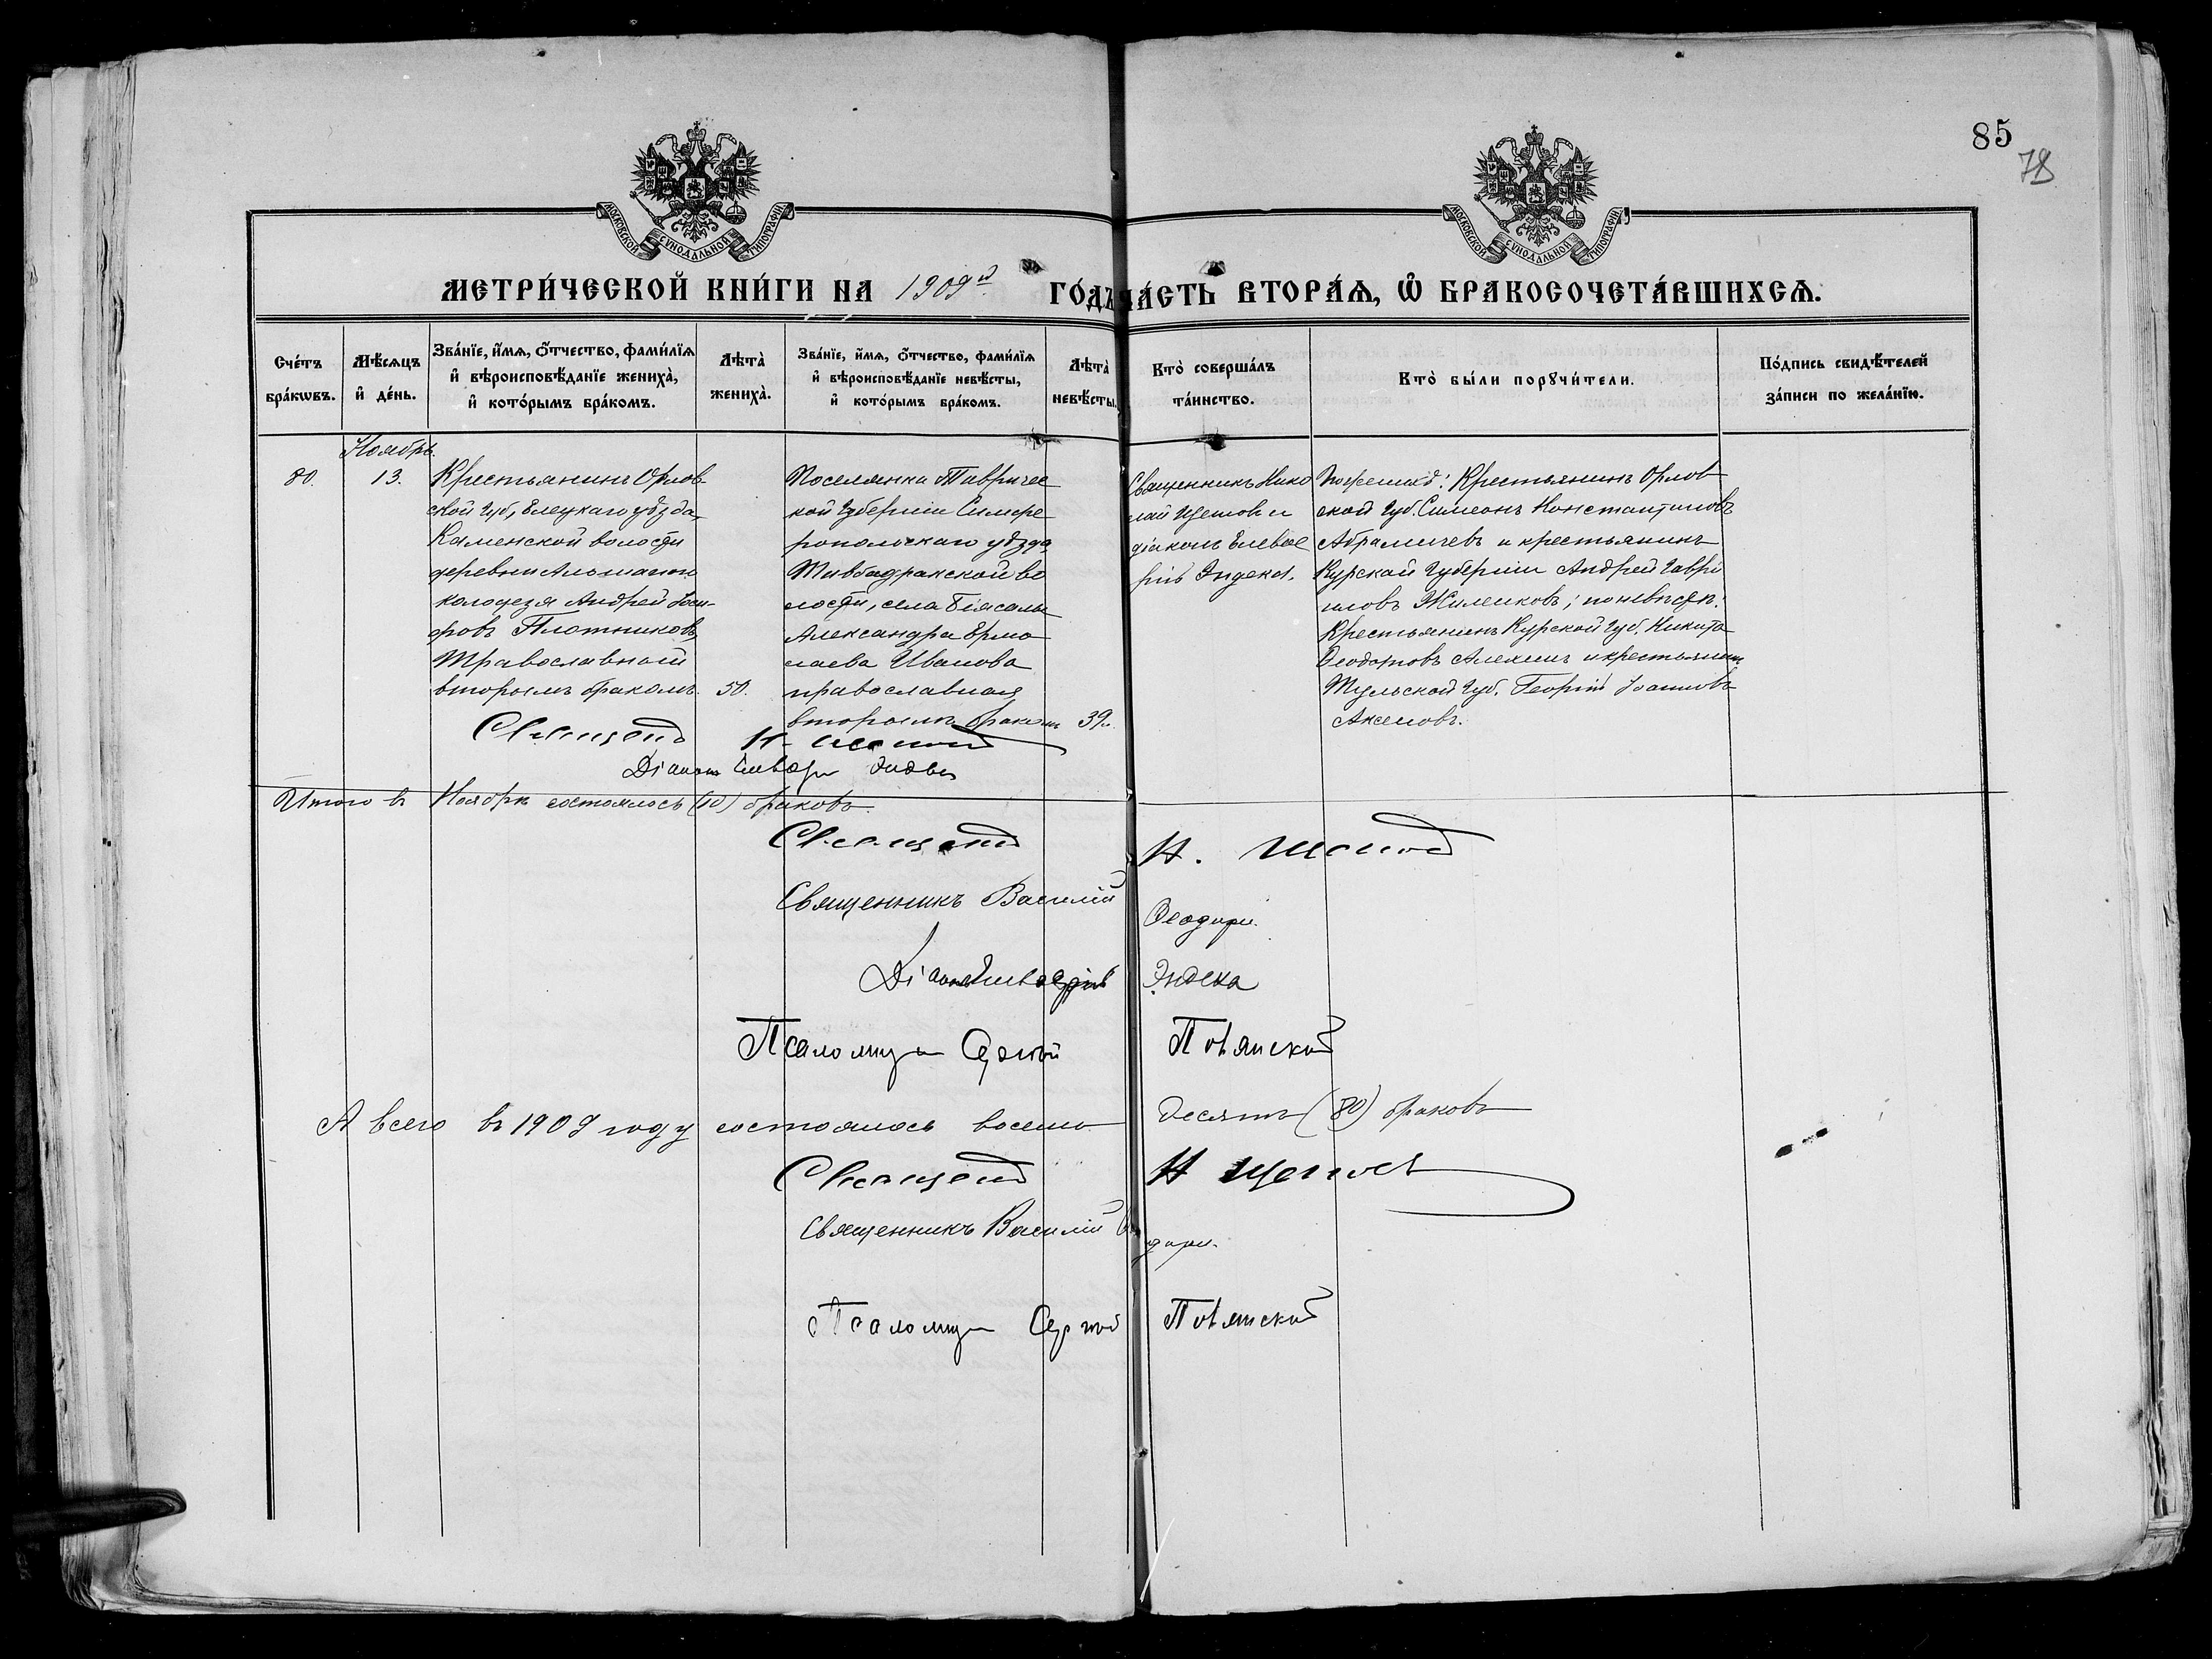 85
78
МОСКОВСКОЙ СѴНОДАЛЬНОЙ ТИПОГРАФІИ
МОСКОВСКОЙ СѴНОДАЛЬНОЙ ТИПОГРАФІИ
МЕТРИ́ЧЕСКОЙ КНИ́ГИ НА 1909й ГО́ДЪ ЧА́СТЬ ВТОРА́Ѧ, Ѽ БРАКОСОЧЕТА́ВШИХСѦ.
Сче́тъ бра́кѡвъ.
Мѣ́сѧцъ и҆ де́нь.
Зва́нїе, и҆́мѧ, ѻ҆́тчество, фами́лїѧ и҆ вѣроисповѣ́данїе жениха̀, и҆ кото́рымъ бра́комъ.
Лѣта̀ жениха̀.
Зва́нїе, и҆́мѧ, ѻ҆́тчество, фами́лїѧ и҆ вѣроисповѣ́данїе невѣ́сты, и҆ кото́рымъ бра́комъ.
Лѣта̀ невѣ́сты.
Кто̀ соверша́лъ та́инство.
Кто̀ бы́ли порꙋчи́тели.
По́дпись свидѣ́телей за́писи по жела́нїю.
Ноябрь.
80.
13.
Крестьянинъ Орлов-
ской Губ, Елецкаго уѣзда,
Каменской волости
деревни
колодезя Андрей Іоси-
фовъ Плотниковъ
Православный
вторымъ бракомъ.
50.
Поселянка Тавричес
кой Губерніи Симфе
ропольскаго уѣзда
волости, села Біясалы
Александра Ермо
лаева Иванова
православная
вторымъ бракомъ
39.
Священникъ Нико
лай Щегловъ и
діаконъ Елевфе
рій Эндека.
По женихѣ: Крестьянинъ Орлов
ской Губ. Симеонъ Константиновъ
Абрамичевъ и крестьянинъ
Курской Губерніи Андрей Гаврі
иловъ Жиленковъ; по невѣстѣ:
Крестьянинъ Курской Губ. Никита
Ѳеодоровъ Алехинъ и крестьянинъ
Тульской Губ. Георгій Іоанновъ
Аксеновъ.
Діаконъ
Итого въ Ноябрѣ состоялось (10) браковъ.
Священникъ Василій Ѳеодори.
Діаконъ Елевферій Эндека
Псаломщ Сергій
А всего въ 1909 году состоялось восемь десятъ (80) браковъ
Священникъ Василій Ѳеодори.
Псаломщ Сергій